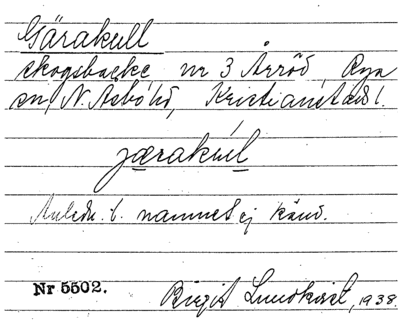 Gärakull
skogsbacke nr 3 Årröd, Rya
sn, N. Åsbo hd, Kristianstads l.
jærakúl
Anledn. t. namnet ej känd.
Nr 5502. Birgit Lundkvist, 1938.